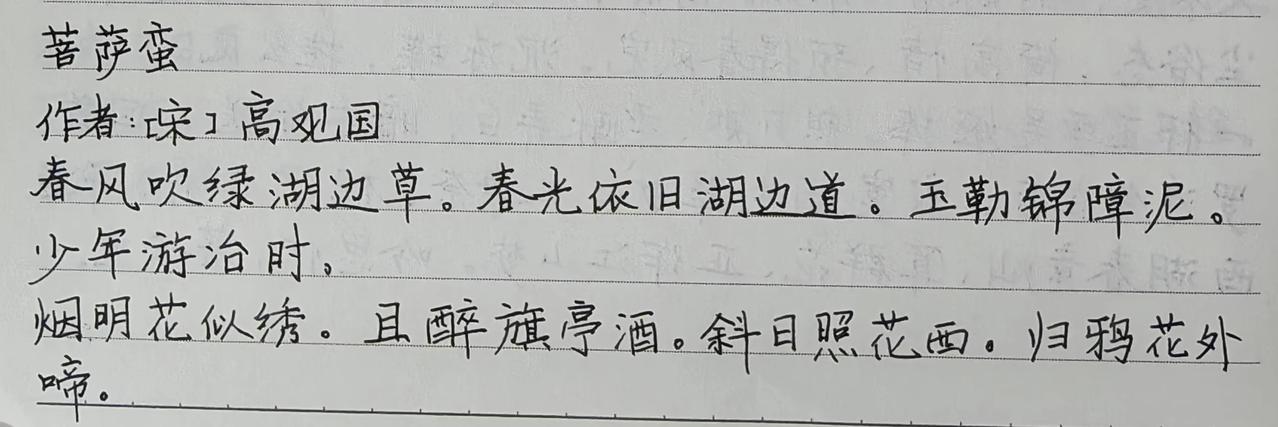 菩萨蛮
作者:[宋]高观国
春风吹绿湖边草。春光依旧湖边道。玉勒锦障泥。
少年游冶时。
烟明花似绣。且醉旗亭酒。斜日照花西。归鸦花外
啼。